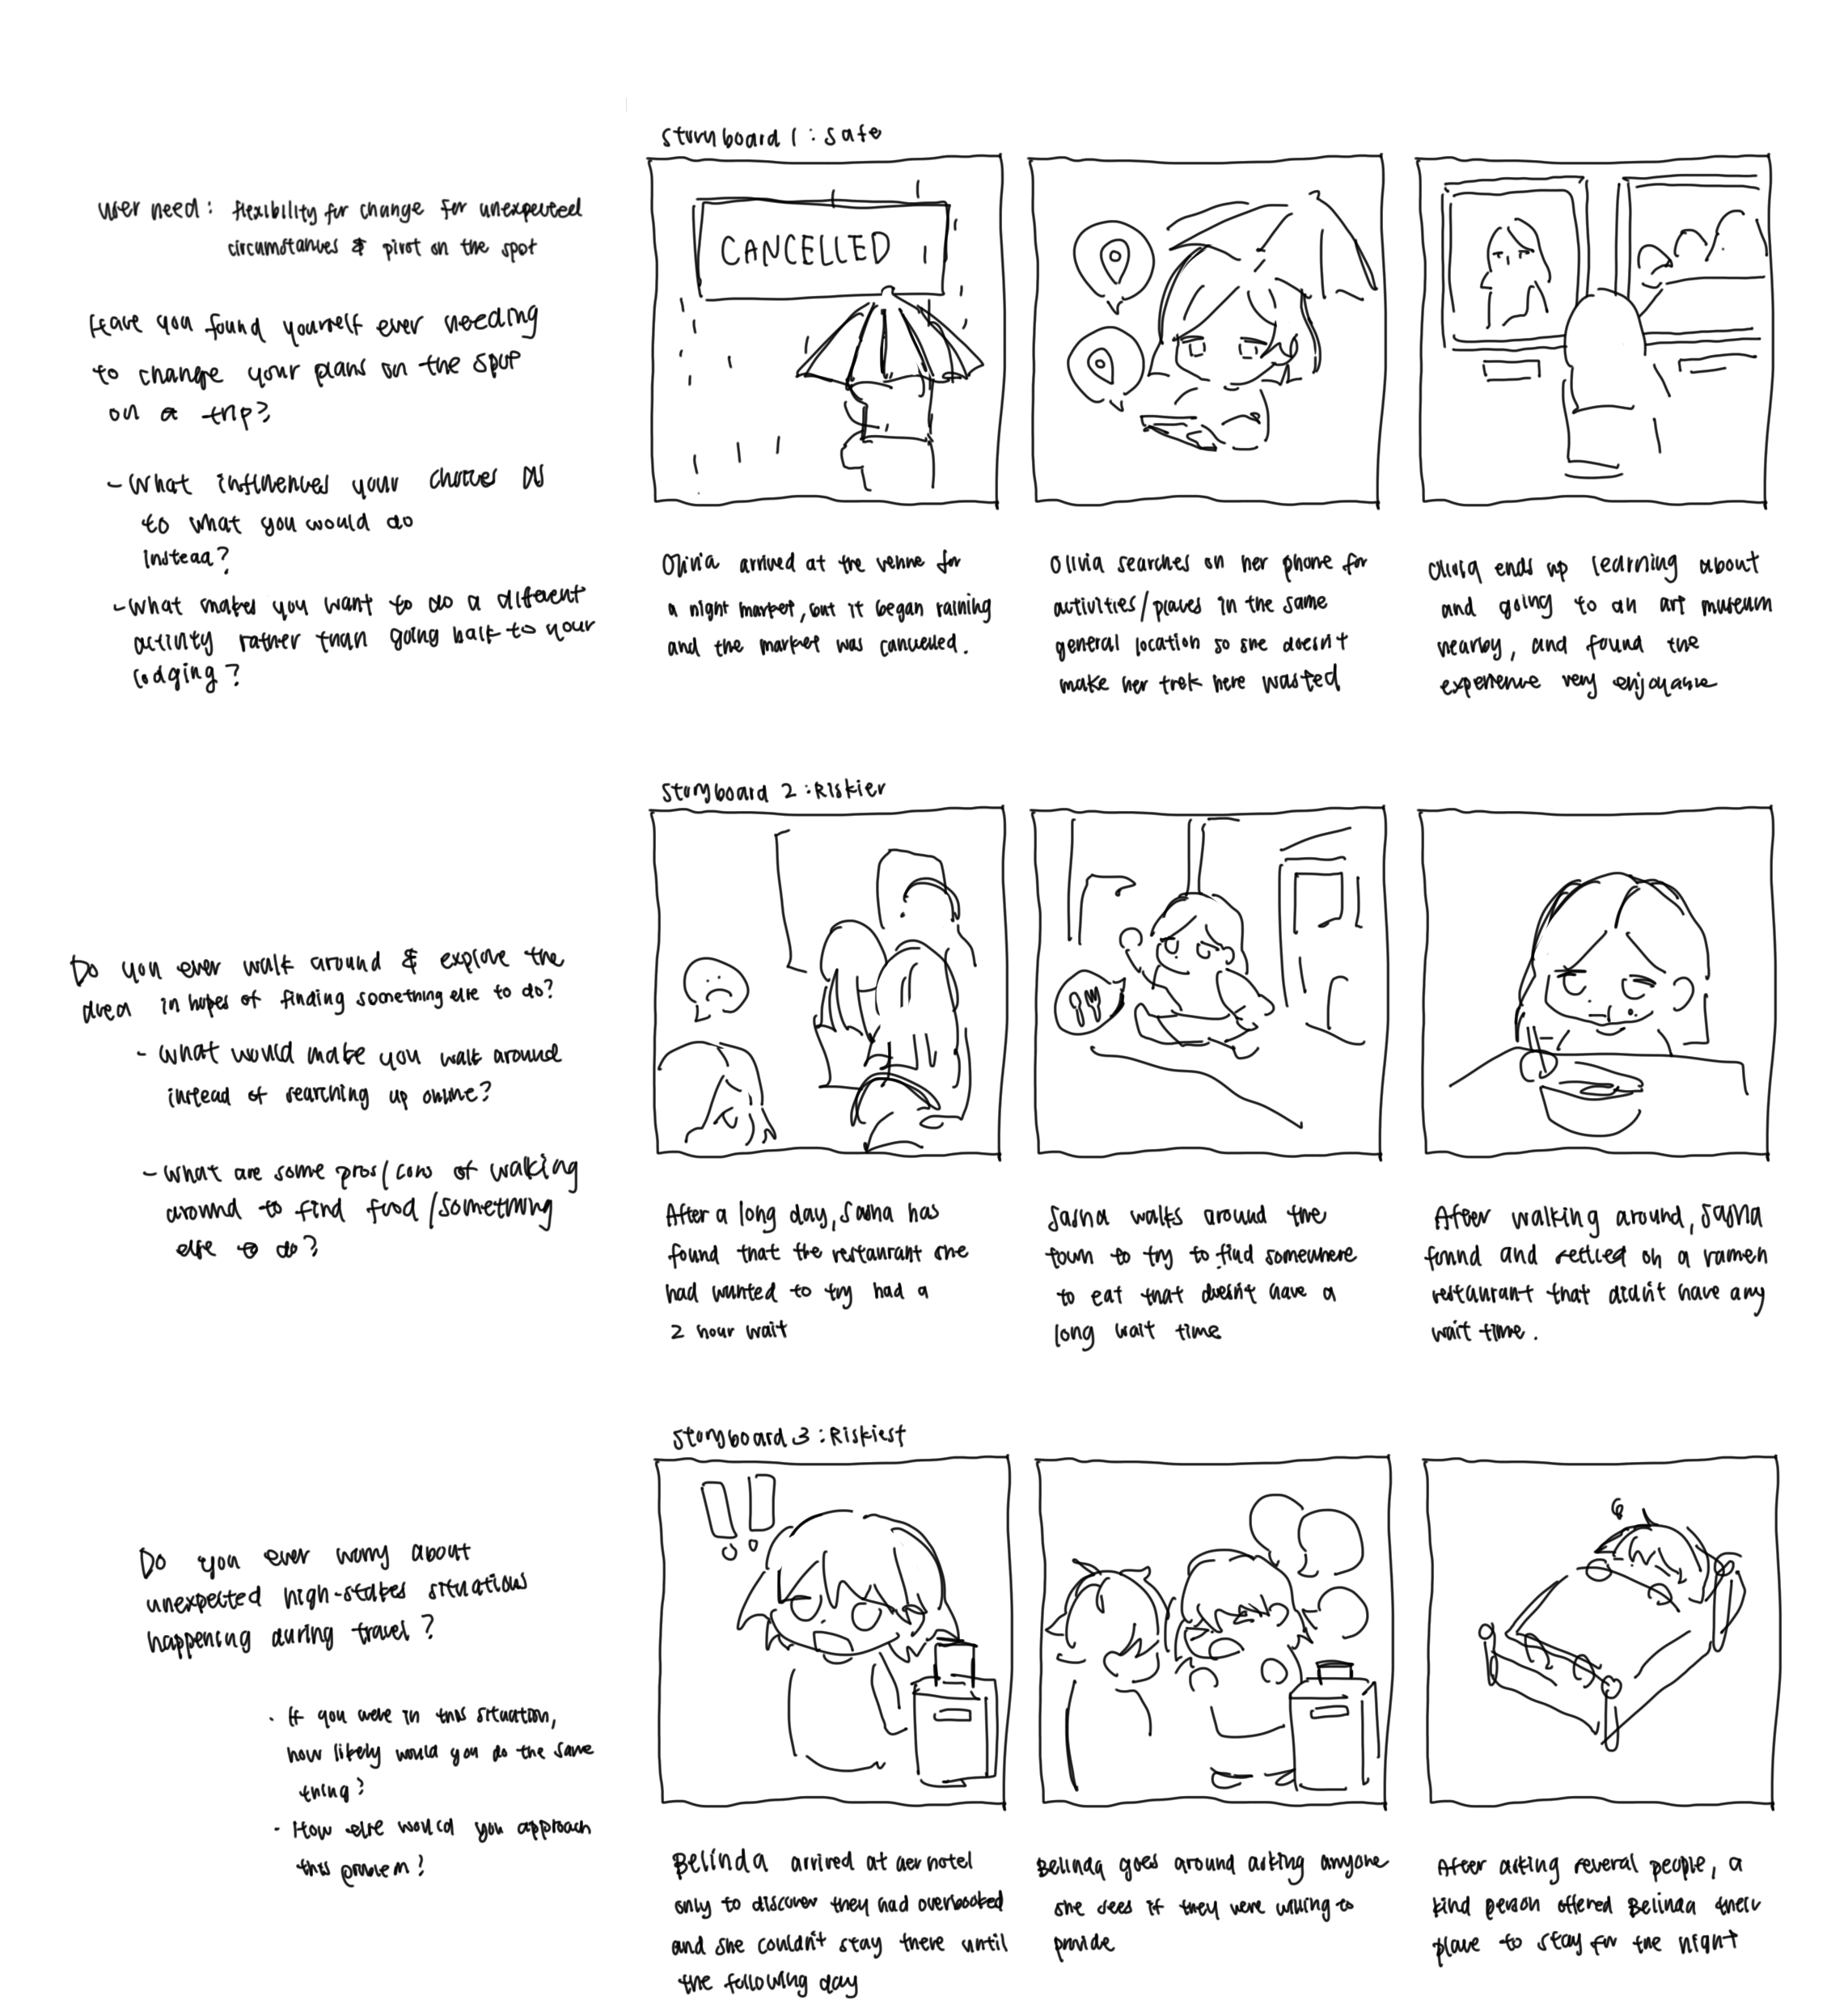 user need: flexibility for change for unexpected
circumstances & pivot on the spot
Have you found yourself ever needing
to change your plans on the spot
on a trip?
- What influences your choices as
to what you would do
instead?
- What makes you want to do a different
activity rather than going back to your
lodging?
Storyboard 1: Safe
CANCELLED
Olivia arrived at the venue for
a night market, but it began raining
and the market was cancelled.
Olivia searches on her phone for
activities/places in the same
general location so she doesn't
make her trek here wasted
Olivia ends up learning about
and going to an art museum
nearby, and found the
experience very enjoyable
Do you ever walk around & explore the
area in hopes of finding something else to do?
- What would make you walk around
instead of searching up online?
- What are some pros/cons of walking
around to find food/something
else to do?
Storyboard 2: Riskier
After a long day, Sasha has
found that the restaurant she
had wanted to try had a
2 hour wait
Sasha walks around the
town to try to find somewhere
to eat that doesn't have a
long wait time
After walking around, Sasha
found and settled on a ramen
restaurant that didn't have any
wait time.
Do you ever worry about
unexpected high-stakes situations
happening during travel?
· If you were in this situation,
how likely would you do the same
thing?
- How else would you approach
this problem?
Storyboard 3: Riskiest
!!
Belinda arrived at her hotel
only to discover they had overbooked
and she couldn't stay there until
the following day
Belinda goes around asking anyone
she sees if they were willing to
provide
After asking several people, a
kind person offered Belinda their
place to stay for the night